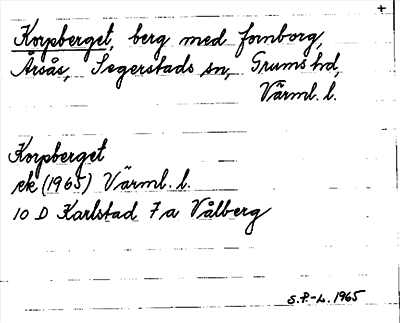 +
Korpberget, berg med fornborg,
Årsås, Segerstads sn, Grums hd,
Värml. l.
Korpberget
ek (1965) Värml. l.
10 D Karlstad 7a Vålberg
S.P.-L. 1965